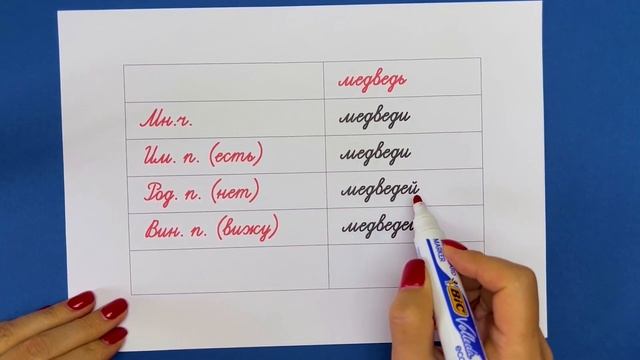 медведь
Мн.ч. медведи
Им. п. (есть) медведи
Род. п. (нет) медведей
Вин. п. (вижу)
MARKER
BIC